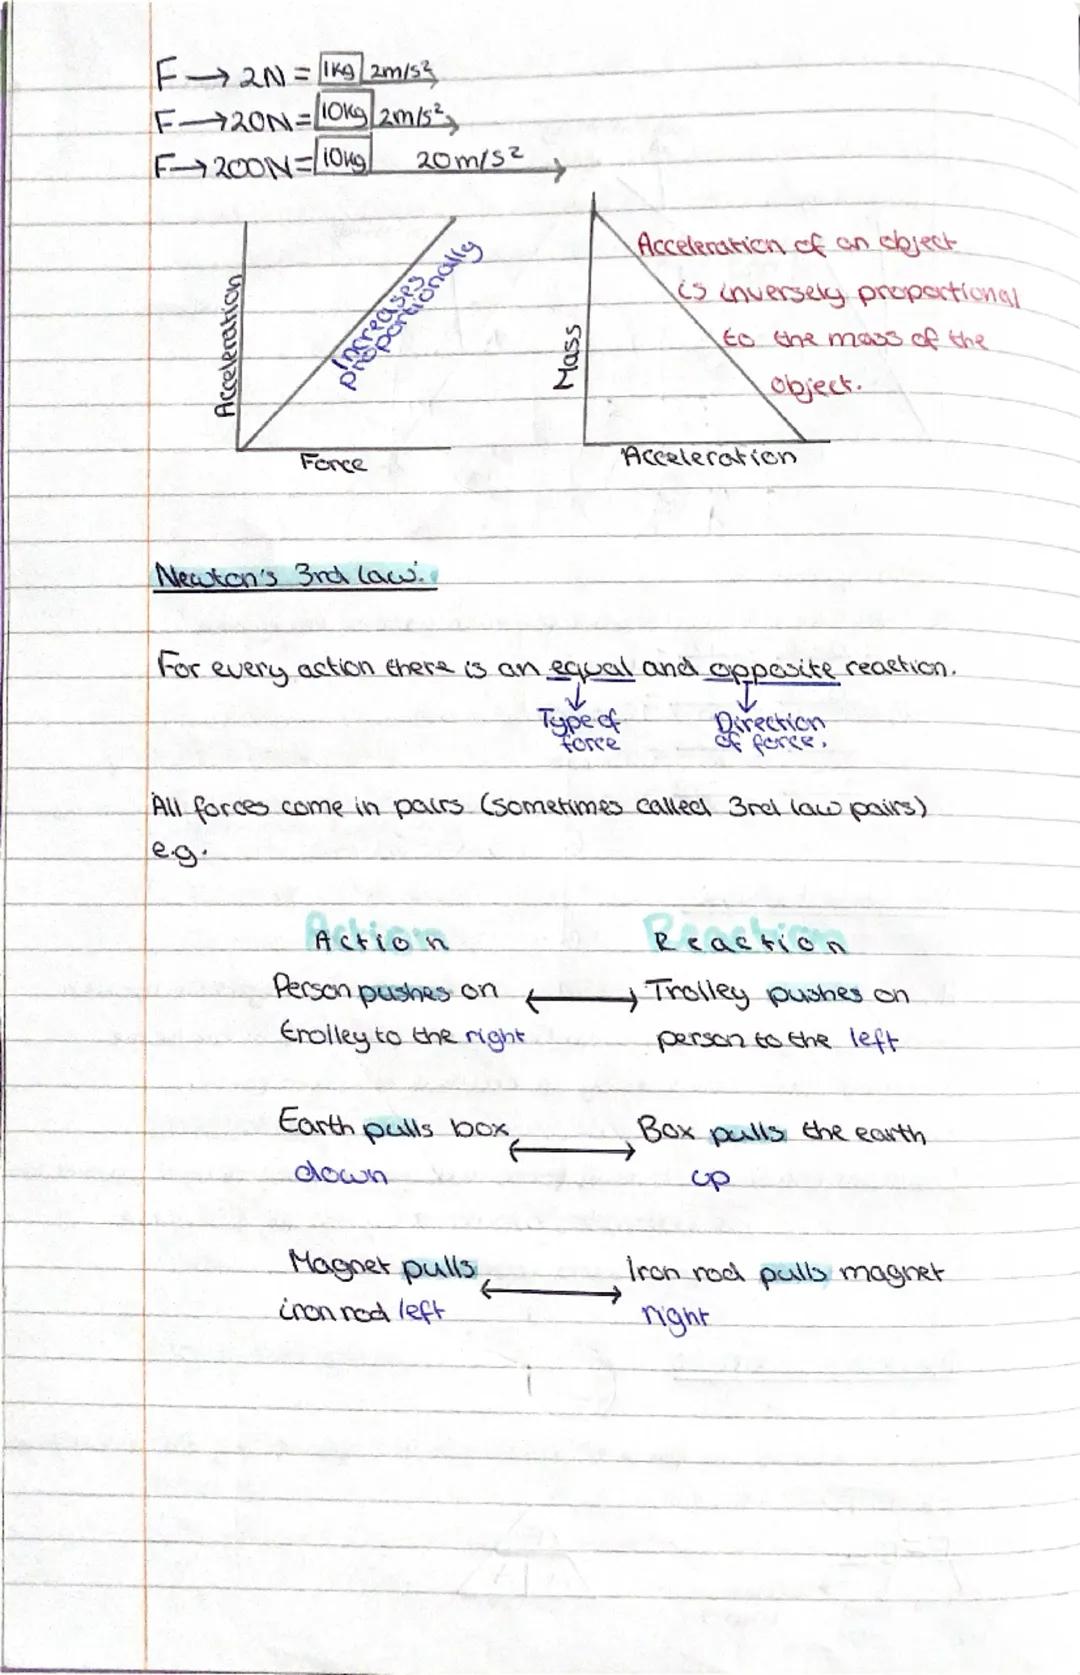 F → 2N = 1kg 2m/s²
F → 20N = 10kg 2m/s²
F → 200N = 10kg 20m/s²
Acceleration
Increases
proportionally
Force
Mass
Acceleration of an object
is inversely proportional
to the mass of the
object.
Acceleration
Newton's 3rd law:
For every action there is an equal and opposite reaction.
Type of
force
Direction
of force.
All forces come in pairs (sometimes called 3rd law pairs)
e.g.
Action
Reaction
Person pushes on ↔ Trolley pushes on
trolley to the right
person to the left
Earth pulls box ↔ Box pulls the earth
down
up
Magnet pulls ↔ Iron rod pulls magnet
iron rod left
right